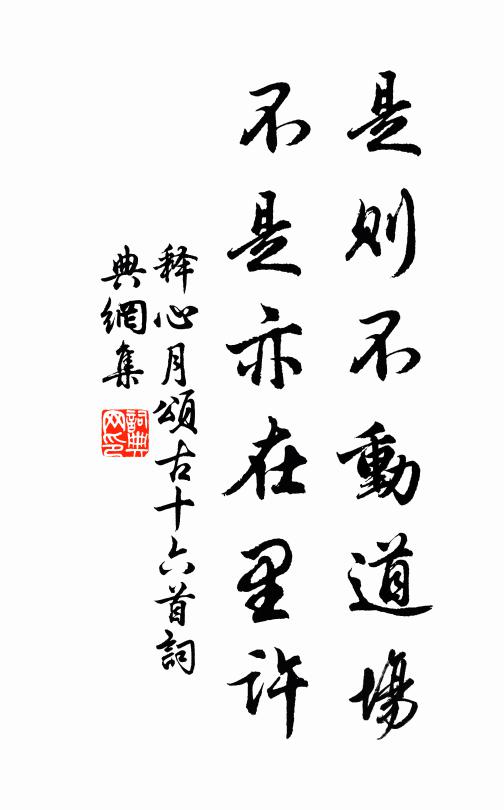 是则不動道場
不是亦在里許
释心月頌古十六首詞
典網集
詞典网印